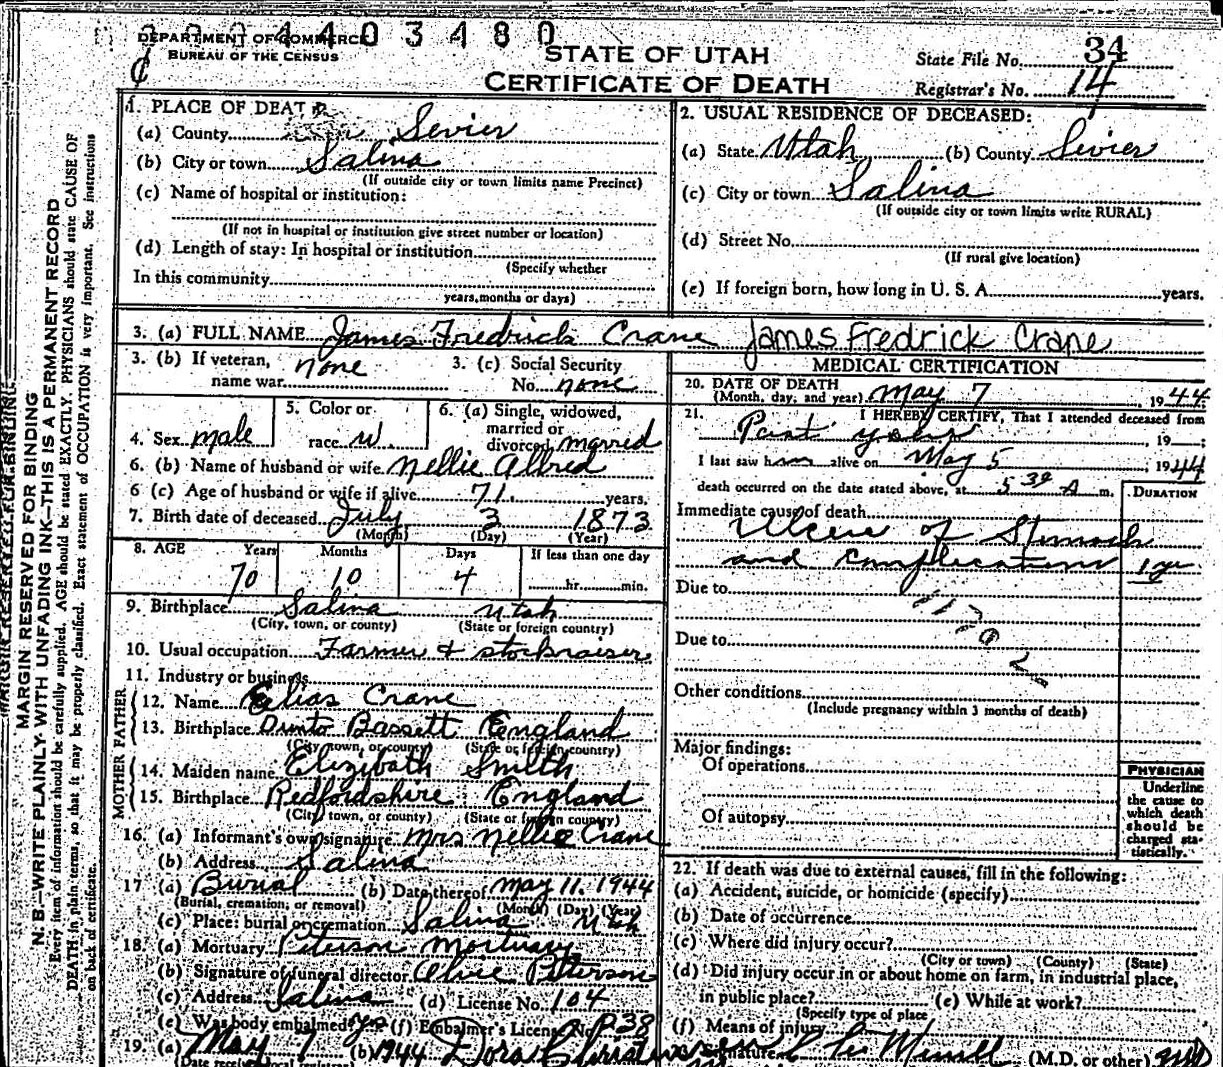 0 0 4 4 0 3 4 8 0
DEPARTMENT OF COMMERCE
BUREAU OF THE CENSUS
STATE OF UTAH
CERTIFICATE OF DEATH
State File No. 34
Registrar's No. 14
MARGIN RESERVED FOR BINDING
N. B.—WRITE PLAINLY WITH UNFADING INK—THIS IS A PERMANENT RECORD
Every item of information should be carefully supplied. AGE should be stated EXACTLY. PHYSICIANS should state CAUSE OF
DEATH in plain terms, so that it may be properly classified. Exact statement of OCCUPATION is very important. See instructions
on back of certificate.
1. PLACE OF DEATH
(a) County Sevier
(b) City or town Salina
(If outside city or town limits name Precinct)
(c) Name of hospital or institution:
(If not in hospital or institution give street number or location)
(d) Length of stay: In hospital or institution
(Specify whether
In this community
years, months or days)
2. USUAL RESIDENCE OF DECEASED:
(a) State Utah (b) County Sevier
(c) City or town Salina
(If outside city or town limits write RURAL)
(d) Street No.
(If rural give location)
(e) If foreign born, how long in U. S. A. years.
3. (a) FULL NAME James Fredrick Crane James Fredrick Crane
3. (b) If veteran, name war none
3. (c) Social Security No. none
4. Sex male
5. Color or race W.
6. (a) Single, widowed, married or divorced married
6. (b) Name of husband or wife Nellie Allred
6 (c) Age of husband or wife if alive 71 years.
7. Birth date of deceased July 3 1873
(Month) (Day) (Year)
8. AGE Years Months Days If less than one day
70 10 4 hr. min.
9. Birthplace Salina Utah
(City, town, or county) (State or foreign country)
10. Usual occupation Farmer & stockraiser
11. Industry or business
FATHER
12. Name Elias Crane
13. Birthplace Bassett England
(City, town, or county) (State or foreign country)
MOTHER
14. Maiden name Elizibath Smith
15. Birthplace Redfordshire England
(City, town, or county) (State or foreign country)
16. (a) Informant's own signature Mrs Nellie Crane
(b) Address Salina
17. (a) Burial (b) Date thereof May 11. 1944
(Burial, cremation, or removal) (Month) (Day) (Year)
(c) Place: burial or cremation Salina Utah
18. (a) Mortuary Peterson Mortuary
(b) Signature of funeral director Peterson
(c) Address Salina (d) License No. 104
(e) Was body embalmed? yes (f) Embalmer's License No. 238
19. (a) May 7 1944 (b) Dora Christensen
Date received local registrar
MEDICAL CERTIFICATION
20. DATE OF DEATH
(Month, day, and year) May 7, 1944
21. I HEREBY CERTIFY, That I attended deceased from
Past , 19 ;
I last saw him alive on May 5, 1944
death occurred on the date stated above, at 5 30 A m.
DURATION
Immediate cause of death
Ulcere of Stomach
and complications 1 yr
Due to
Due to
Other conditions
(Include pregnancy within 3 months of death)
Major findings:
Of operations
Of autopsy
PHYSICIAN
Underline
the cause to
which death
should be
charged sta-
tistically.
22. If death was due to external causes, fill in the following:
(a) Accident, suicide, or homicide (specify)
(b) Date of occurrence
(c) Where did injury occur?
(City or town) (County) (State)
(d) Did injury occur in or about home on farm, in industrial place,
in public place? (e) While at work?
(Specify type of place
(f) Means of injury
Signature Merrill (M.D. or other) MD